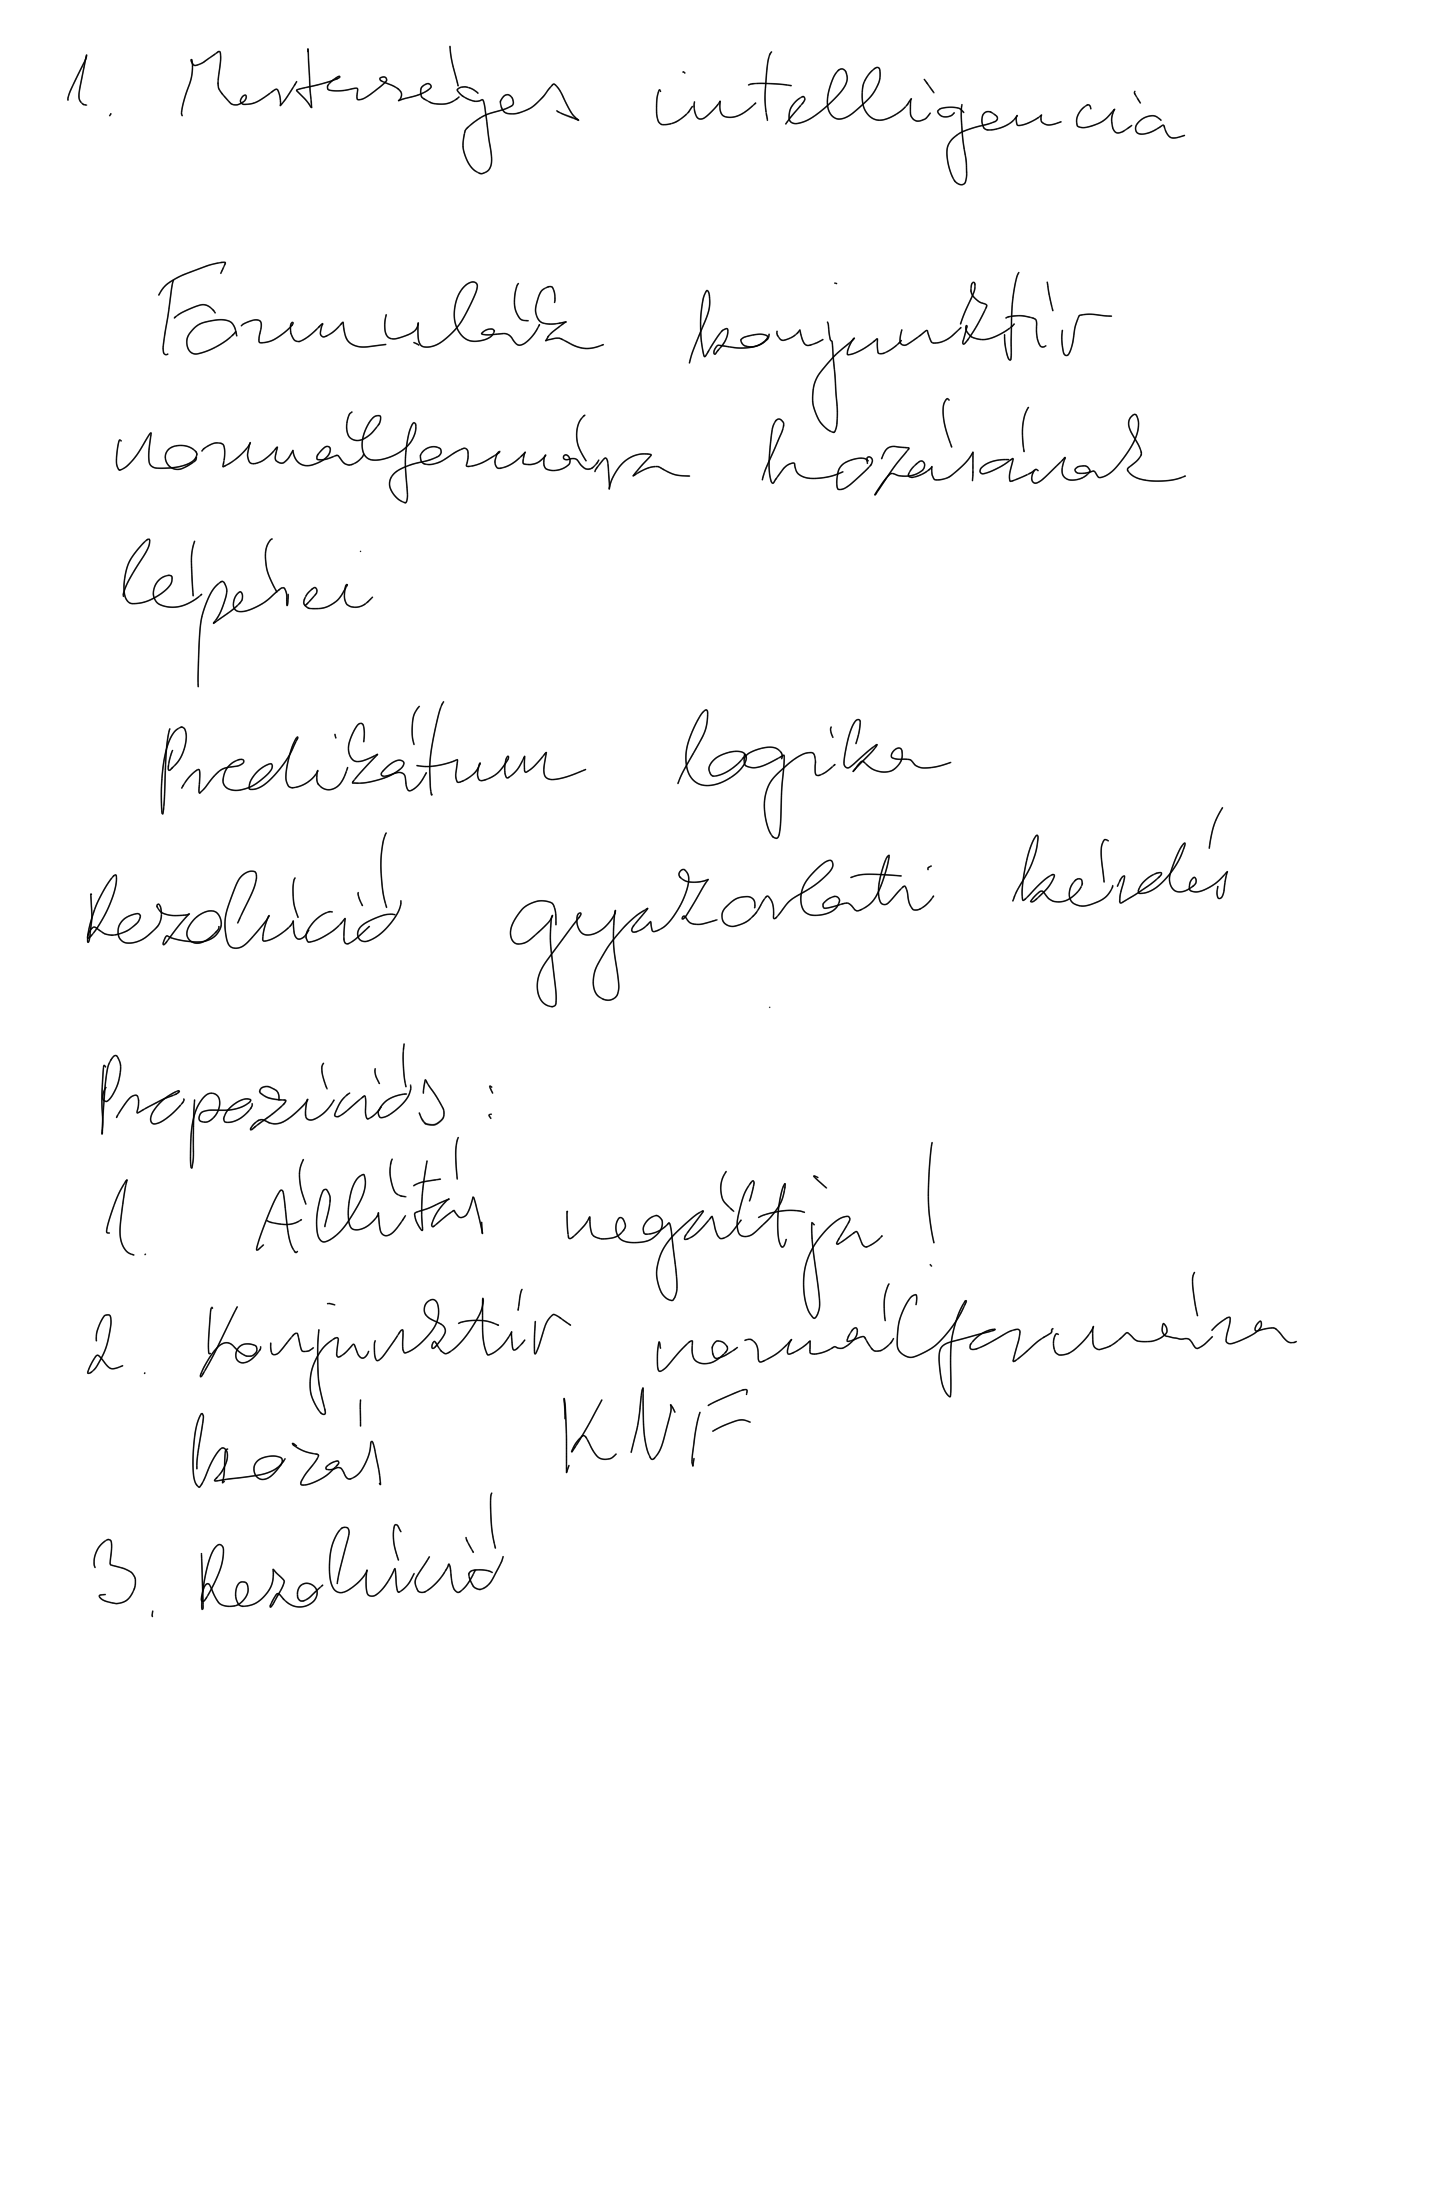 1. Mesterséges intelligencia
Formulák konjunktív
normálformára hozásának
lépései
Predikátum logika
Rezolúció gyakorlati kérdés
Propozíciós:
1. Állítás negáltja!
2. Konjunktív normálformára
hozás KNF
3. Rezolúció